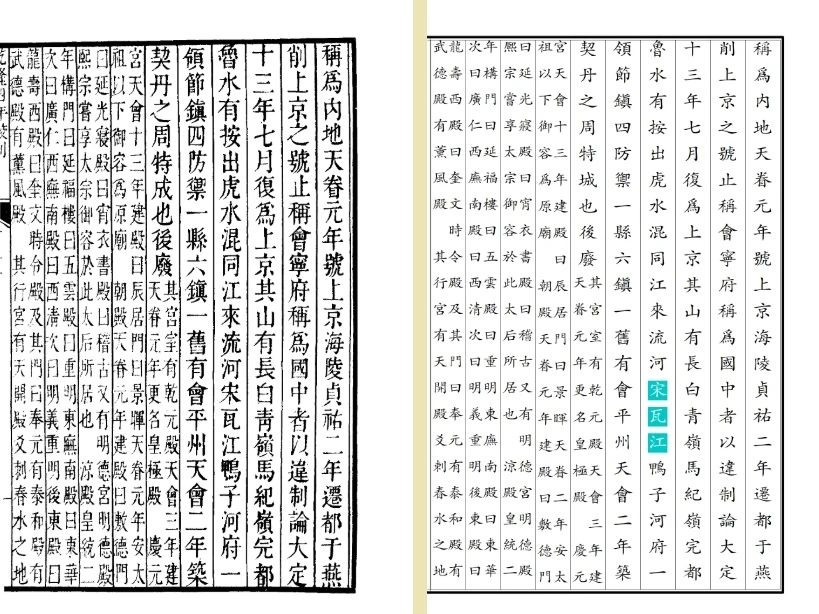 稱爲内地天眷元年號上京海陵貞祐二年遷都于燕
削上京之號止稱會寧府稱爲國中者以違制論大定
十三年七月復爲上京其山有長白靑嶺馬紀嶺完都
魯水有按出虎水混同江來流河宋瓦江鴨子河府一
領節鎮四防禦一縣六鎮一舊有會平州天會二年築
契丹之周特成也後廢其宮室有乾元殿天會三年建
天眷元年更名皇極殿 慶元
宮天會十三年建殿曰辰居門曰景暉天眷元年安太
祖以下御容爲原廟 朝殿天眷元年建殿曰敷德門
曰延光寢殿曰宵衣書殿曰稽古又有明德宮明德殿
熙宗嘗享太宗御容於此太后所居也 涼殿皇統二
年構門曰延福樓曰五雲殿曰重明東廡南殿曰東華
次曰廣仁西廡南殿曰西淸次曰明義重明後東殿曰
龍壽西殿曰奎文時令殿及其門曰奉元有泰和殿有
武德殿有薰風殿 其行宮有天開殿爻剌春水之地
稱爲内地天眷元年號上京海陵貞祐二年遷都于燕
削上京之號止稱會寧府稱爲國中者以違制論大定
十三年七月復爲上京其山有長白青嶺馬紀嶺完都
魯水有按出虎水混同江來流河宋瓦江鴨子河府一
領節鎮四防禦一縣六鎮一舊有會平州天會二年築
契丹之周特城也後廢其宮室有乾元殿天會三年建
天眷元年更名皇極殿 慶元
宮天會十三年建殿曰辰居門曰景暉天眷二年安太
祖以下御容爲原廟 朝殿天眷元年建殿曰敷德門
曰延光寢殿曰宵衣書殿曰稽古又有明德宮明德殿
熙宗嘗享太宗御容於此太后所居也 涼殿皇統二
年構門曰延福樓曰五雲殿曰重明東廡南殿曰東華
次曰廣仁西廡南殿曰西清次曰明義重明後東殿曰
龍壽西殿曰奎文時令殿及其門曰奉元有泰和殿有
武德殿有薰風殿 其行宮有天開殿爻剌春水之地